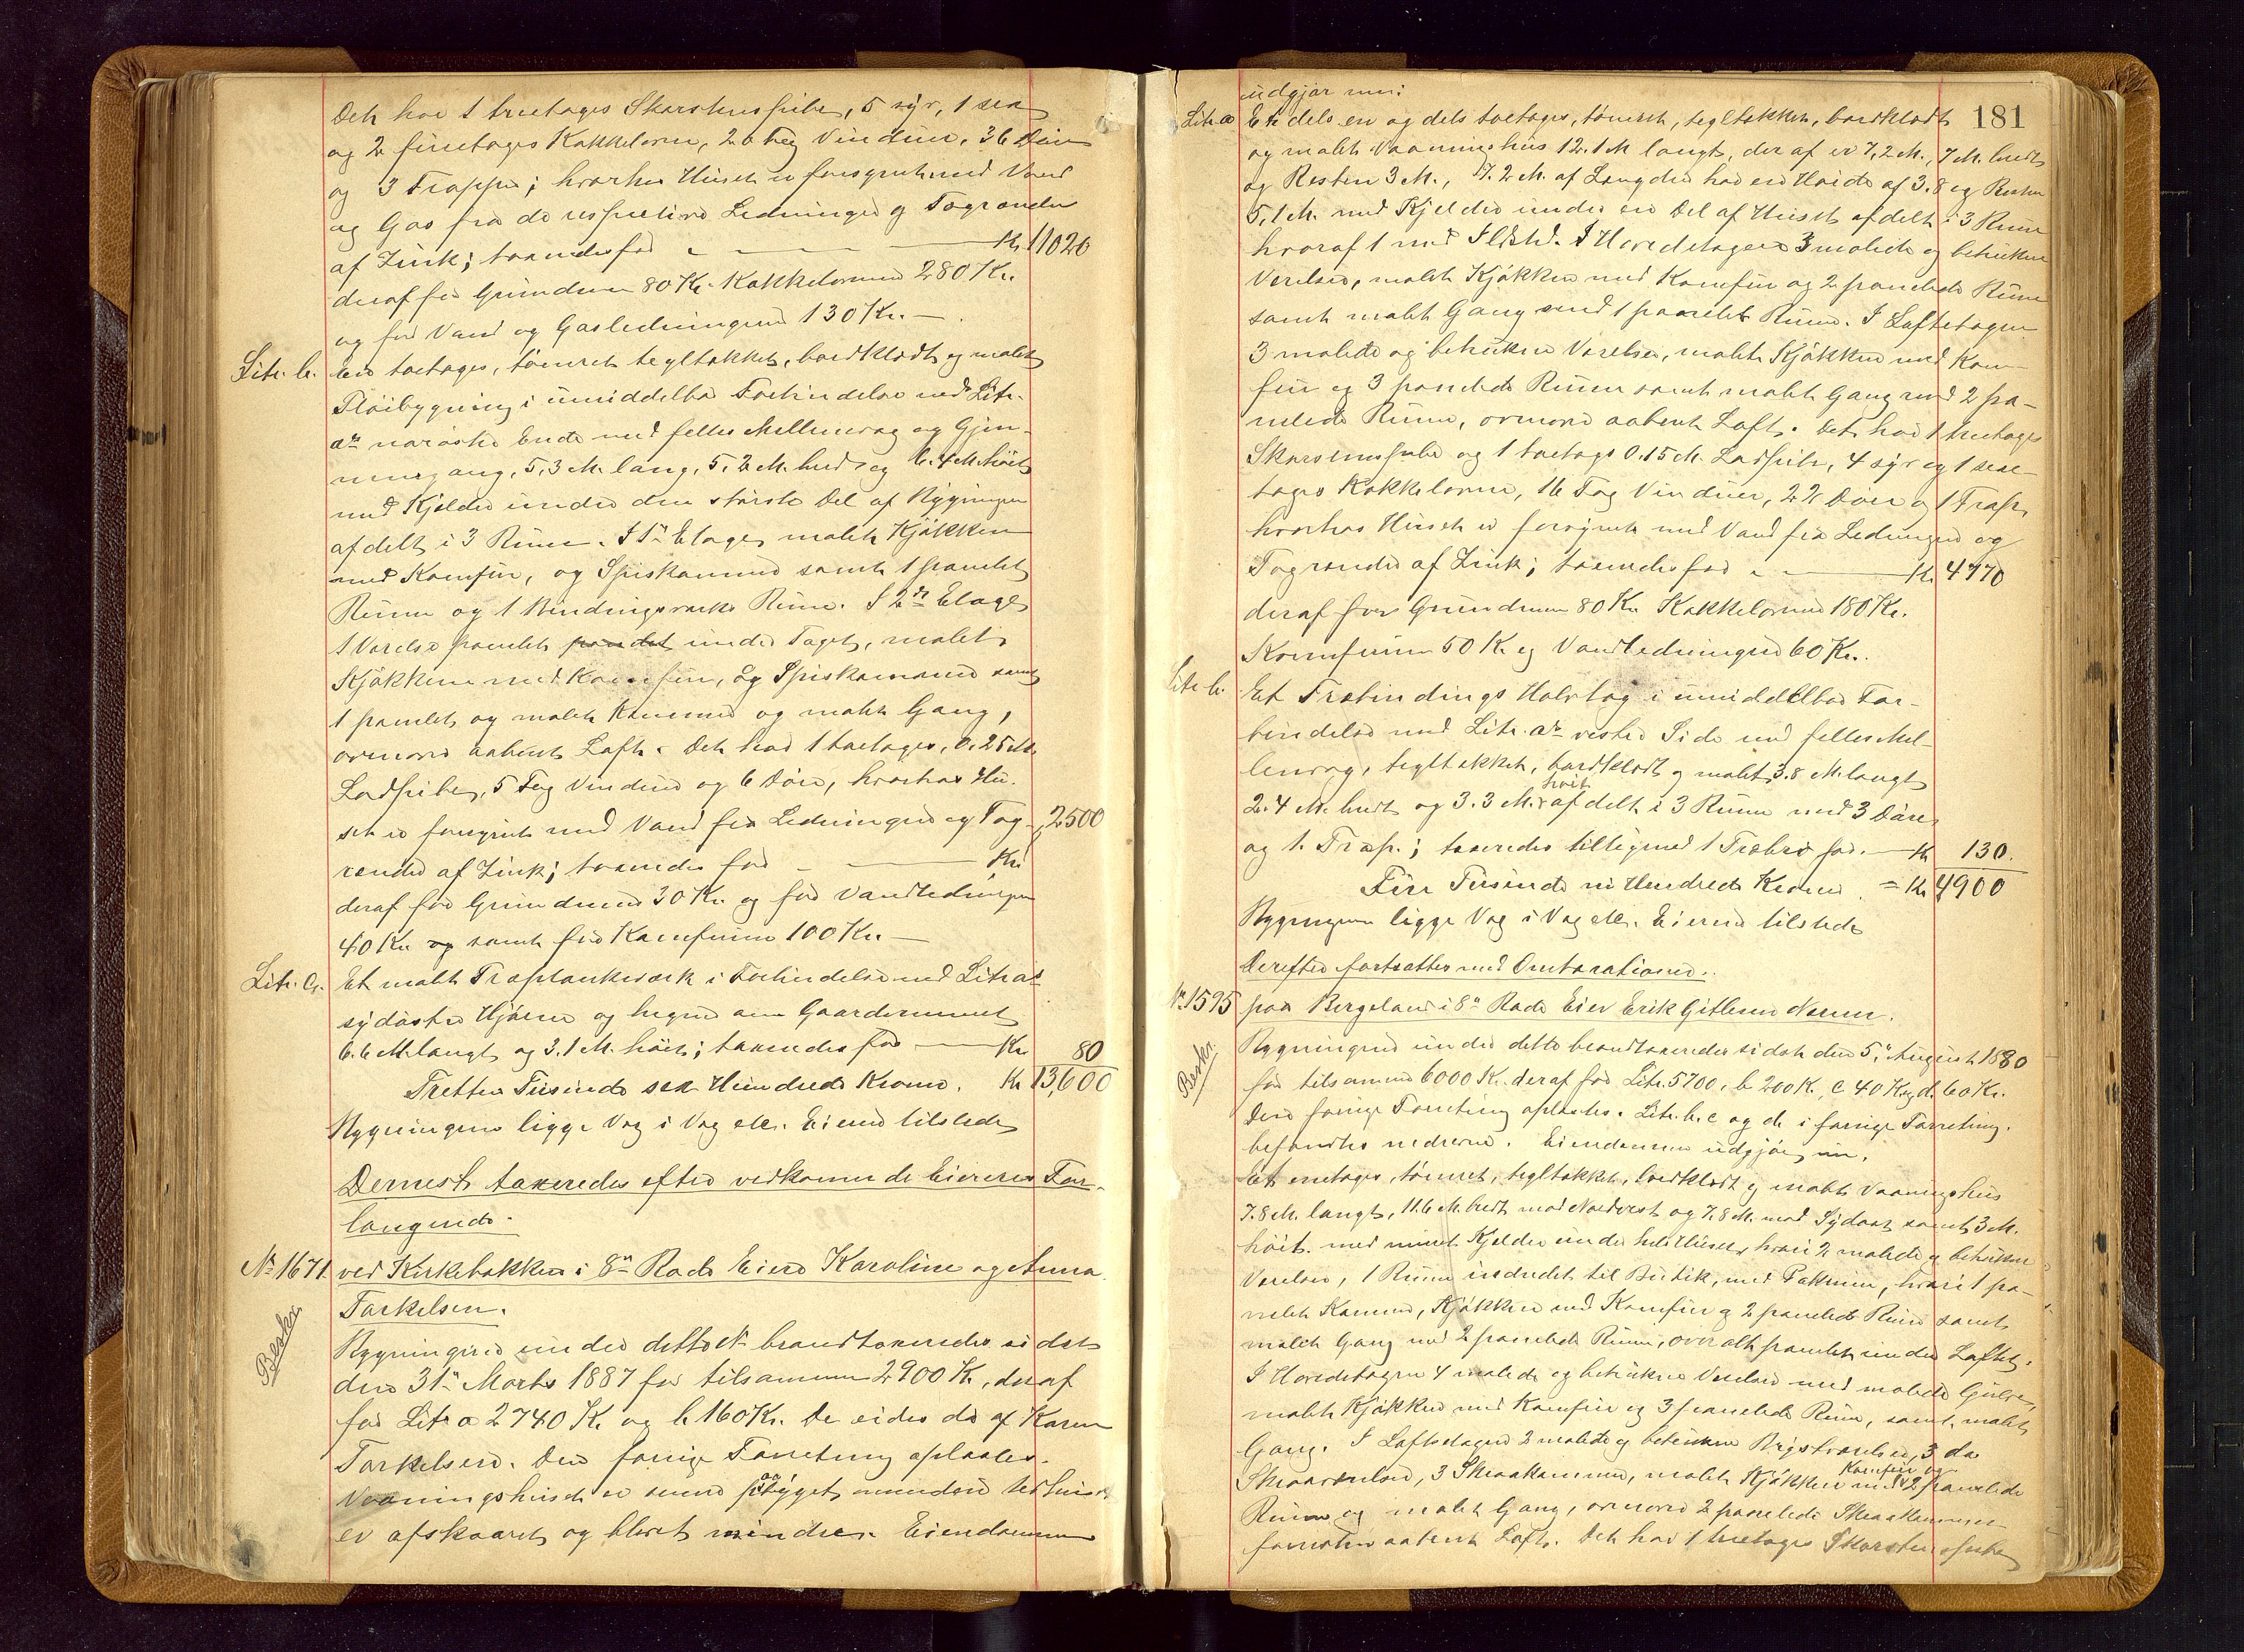 Det har 1 treetages Skorstenspibe, 5 syv, 1 sex
og 2 fireetages Kakkelovne, 26 Fag Vinduer, 36 Döre
og 3 Trapper; hvorhos Huset er forsynet med Vand
og Gas fra de respective Ledninger og Tagrender
af Zink; taxeredes for - - - Kr. 11020
deraf for Grundmur 80 Kr. Kakkelovnene 280 Kr.
og for Vand og Gasledningerne 130 Kr. —
Litr. b. En toetages, tömret, tegltækket, bordklædt og malet
Flöibygning i umiddelbar Forbindelse med Litr.
a's nordöstre Ende med fælles Mellemvæg og Gjen-
nemgang, 5,3 M. lang, 5,2 M. bred og 6.4 M. höi
med Kjelder under den störste Del af Bygningen
afdelt i 3 Rum. I 1ste Etage malet Kjökken
med Komfur, og Spiskammer samt 1 panelet
Rum og 1 Bindingsverks Rum. I 2den Etage
1 Værelse panelet under Taget, malet
Kjökken med Komfur, og Spiskammer samt
1 panelet og malet Kammer og malet Gang,
ovenover aabent Loft. Det har 1 toetages, 0.25 M.
Lodpibe, 5 Fag Vinduer og 6 Döre, hvorhos Hu-
set er forsynet med Vand fra Ledningen og Tag- 2500
render af Zink; taxeredes for - — Kr.
deraf for Grundmur 30 Kr. og for Vandledningen
40 Kr. og samt for Komfurene 100 Kr. —
Litr. c. Et malet Træplankeværk i Forbindelse med Litr. a's
sydöstre Hjörne og hegner om Gaardsrummet
6.6 M. langt og 3.1 M. höit; taxeredes for — Kr. 80
Tretten Tusinde sex Hundrede Kroner. Kr. 13,600
Bygningerne ligge Væg i Væg etc. Eierne tilstede
Dernest taxeredes efter vedkommende Eieres For-
langende.
No 1671. ved Kirkebakken i 8de Rode Eiere Karoline og Anna
Torkelsen.
Beskr.
Bygningerne under dette No brandtaxeredes sidst
den 31te Marts 1887 for tilsammen 2900 Kr., deraf
for Litr. a 2740 Kr. og b. 160 Kr. De eides da af Karen
Torkelsen. Den forrige Forretning oplæstes.
Vaaningshuset er senere paabygget, medens Udhuset
er afskaaret og blevet mindre. Eiendommen
181
udgjör nu:
Litr. a Et dels en og dels toetages, tömret, tegltækket, bordklædt
og malet Vaaningshus 12.1 M langt, der af er 7,2 M., 7 M. bredt
og Resten 3 M., 7.2 M. af Længden har en Höide af 3.8 og Resten
5,1 M. med Kjelder under en Del af Huset afdelt i 3 Rum
hvoraf 1 med Ildsted. I Hovedetagen 3 malede og betrukne
Værelser, malet Kjökken med Komfur og 2 panelede Rum
samt malet Gang med 1 panelet Rum. I Loftetagen
3 malede og betrukne Værelser, malet Kjökken med Kom-
fur og 3 panelede Rum samt malet Gang med 2 pa-
nelede Rum, ovenover aabent Loft. Det har 1 treetages
Skorstenspibe og 1 toetages 0.15 M. Lodpibe, 4 syv og 1 sex-
tages Kakkelovne, 16 Fag Vinduer, 22 Döre og 1 Trap,
hvorhos Huset er forsynet med Vand fra Ledningen og
Tagrender af Zink; taxeredes for - — Kr. 4770
deraf for Grundmur 80 Kr. Kakkelovne 180 Kr.
Komfurene 50 Kr. og Vandledningen 60 Kr.
Litr. b. Et Træbindings Halvtag i umiddelbar For-
bindelse med Litr. a's vestre Side med fælles Mel-
lemvæg, tegltækket, bordklædt og malet 3.8 M. langt
2.4 M. bredt og 3.3 M. höit afdelt i 3 Rum med 3 Döre
og 1 Trap; taxeredes tilligemed 1 Træbro for — Kr. 130.
Fire Tusinde ni Hundrede Kroner = Kr. 4900
Bygningerne ligge Væg i Væg etc. Eierne tilstede
Derefter fortsattes med Omtaxationen.
No 1595 paa Bergeland i 8de Rode Eier Erik Gitlesen
Beskr.
Bygningerne under dette brandtaxeredes sidst den 5te August 1880
for tilsammen 6000 Kr. deraf for Litr. 5700, b 200 Kr., c 40 Kr. og d. 60 Kr.
Den forrige Forretning oplæstes. Litr. b. c og d. i forrige Forretning
befandtes nedrevne. Eiendommen udgjör nu:
Et enetages, tömret, tegltækket, bordklædt og malet Vaaningshus
7.8 M. langt, 11.6 M. bredt mod Nordvest og 7.8 M. mod Sydost samt 3 M.
höit. med muret Kjelder under hele Huset, hvori 2 malede og betrukne
Værelser, 1 Rum indredet til Butik, med Pakrum, hvori 1 pa-
nelet Kammer, Kjökken med Komfur og 2 panelede Rum samt
malet Gang med 2 panelede Rum, overalt panelet under Loftet.
I Hovedetagen 4 malede og betrukne Værelser med malede Gulve,
malet Kjökken med Komfur og 3 panelede Rum, samt malet
Gang. I Loftsetagen 2 malede og betrukne Kvistværelser, 3 do
Skraaværelser, 3 Skraakammere, malet Kjökken med Komfur og 2 panelede
Rum og malet Gang, ovenover 2 panelede Skraakammere
foruden aabent Loft. Det har 1 treetages Skorstenspibe